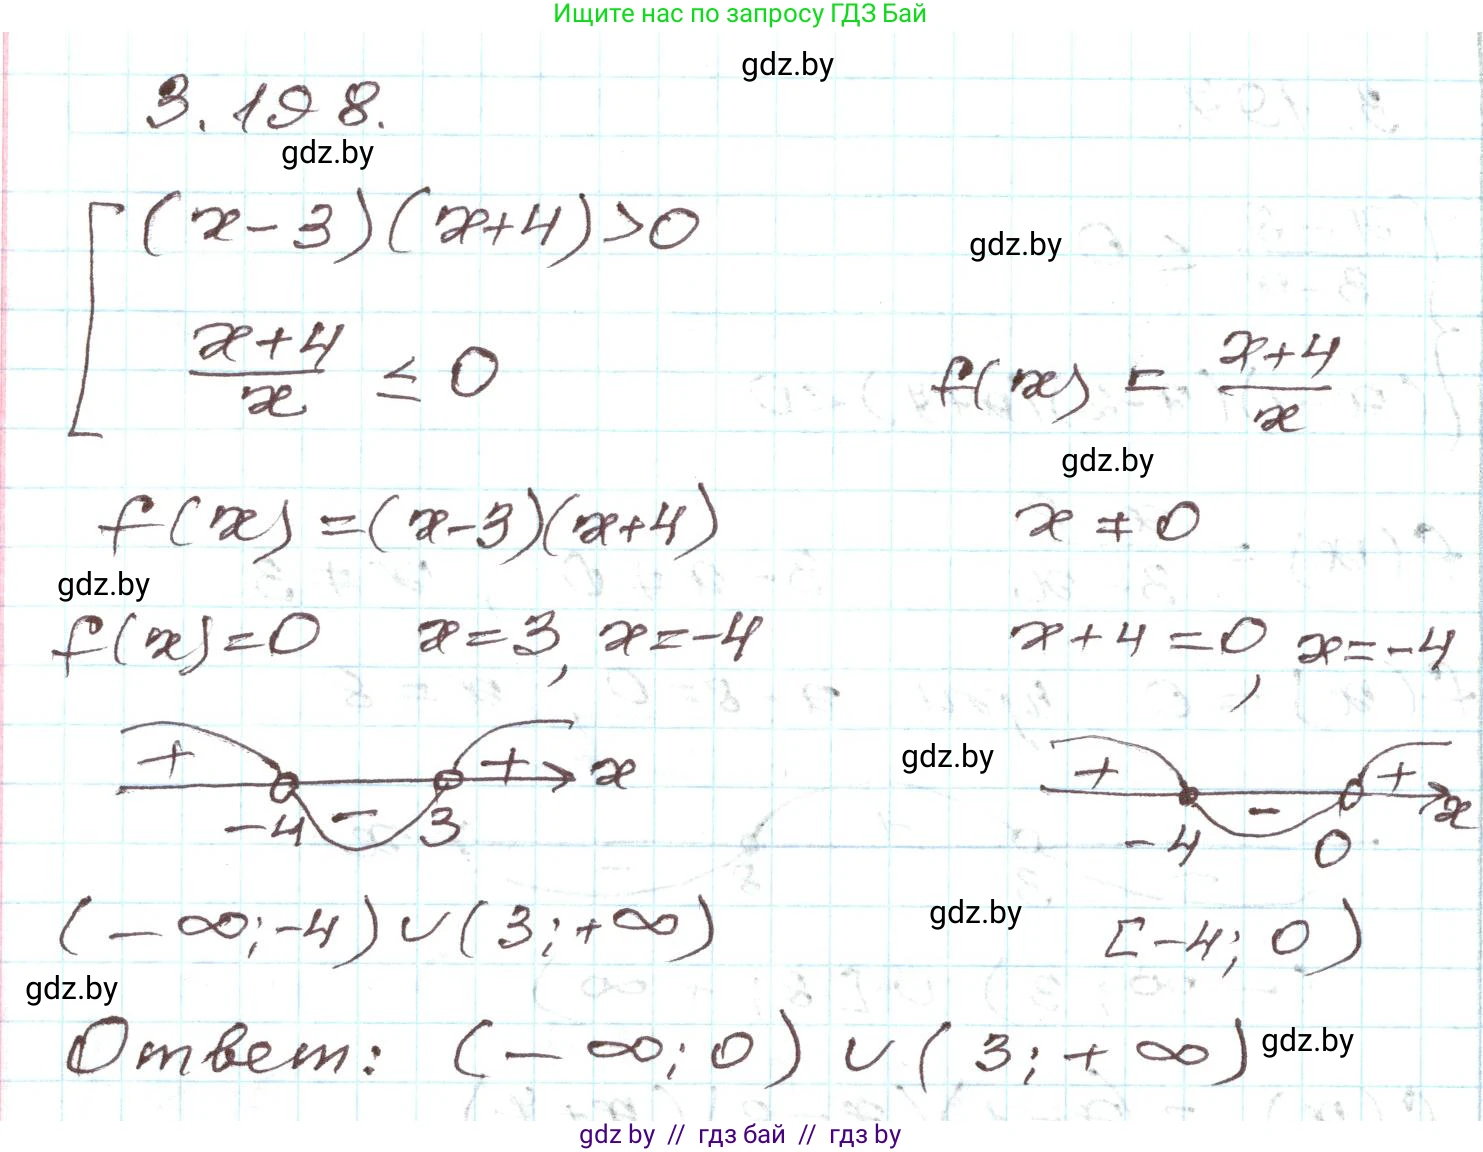 Ищите нас по запросу ГДЗ Бай
gdz.by
3.198.
gdz.by
(x-3)(x+4)>0
gdz.by
x+4
x
≤ 0
f(x) = x+4
x
gdz.by
f(x) =(x-3)(x+4)
x ≠ 0
gdz.by
f(x)=0 x=3, x=-4
x+4=0, x=-4
+ - + x
-4 3
gdz.by
+ - + x
-4 0
(-∞;-4)∪(3;+∞)
gdz.by
[-4; 0)
gdz.by
Ответ: (-∞; 0) ∪ (3; +∞)
gdz.by
gdz by // гдз бай // гдз by